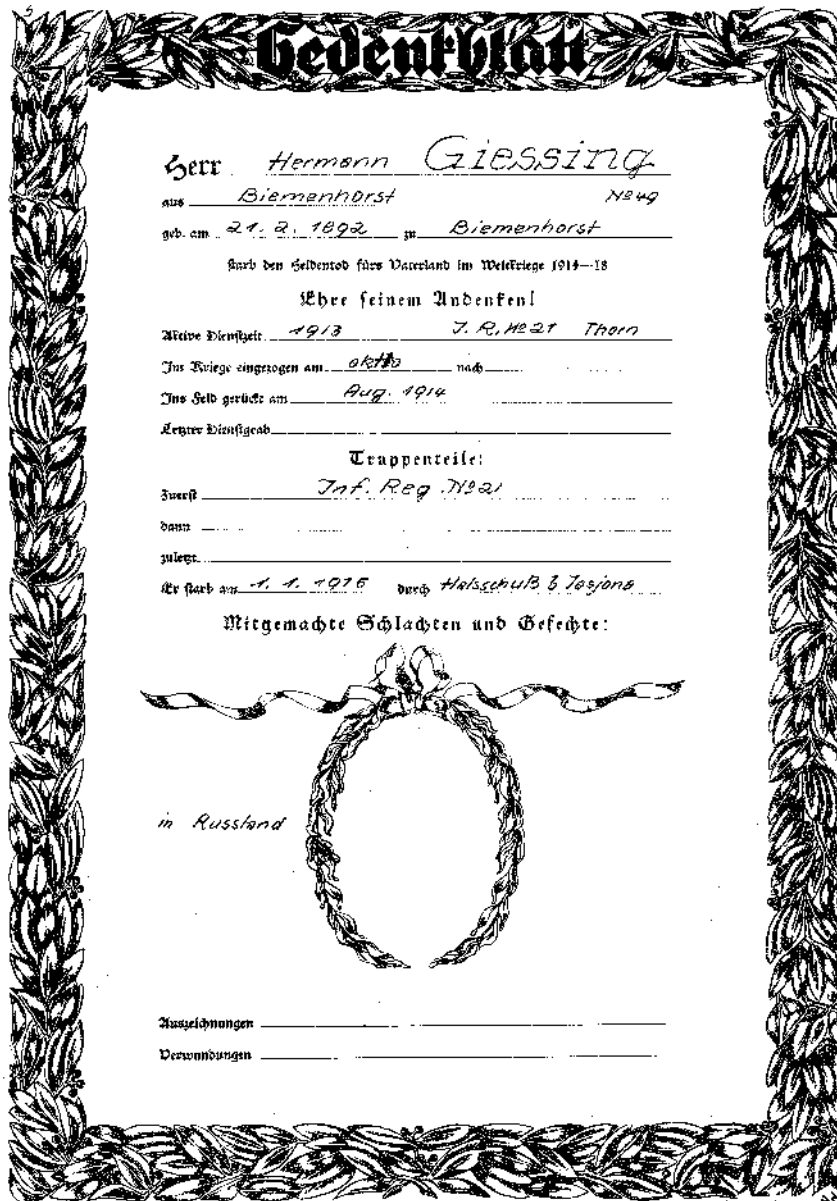 5
Gedenkblatt
Herr Hermann Giessing
aus Biemenhorst № 49
geb. am 21. 2. 1892 zu Biemenhorst
starb den Heldentod fürs Vaterland im Weltkriege 1914—18
Ehre seinem Andenken!
Aktive Dienstzeit 1913 J. R. № 21 Thorn
Im Kriege eingezogen am nach
Ins Feld gerückt am Aug. 1914
Letzter Dienstgrad
Truppenteile:
Zuerst Inf. Reg. № 21
dann
zuletzt
Er starb am 1. 1. 1916 durch Halsschuß b Jasjona
Mitgemachte Schlachten und Gefechte:
in Russland
Auszeichnungen
Verwundungen